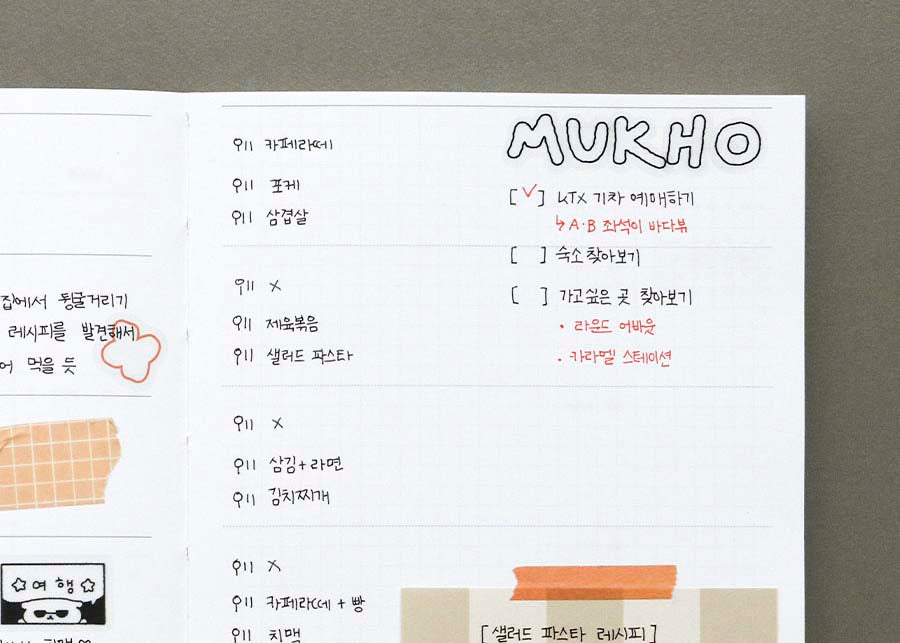 집에서 뒹굴거리기
레시피를 발견해서
어 먹을 듯
여행
카페라떼
포케
삼겹살
X
제육볶음
샐러드 파스타
X
삼김+라면
김치찌개
X
카페라떼 + 빵
치맥
MUKHO
[✓] KTX 기차 예매하기
↳ A·B 좌석이 바다뷰
[ ] 숙소 찾아보기
[ ] 가고싶은 곳 찾아보기
· 라운드 어바웃
· 카라멜 스테이션
[샐러드 파스타 레시피]